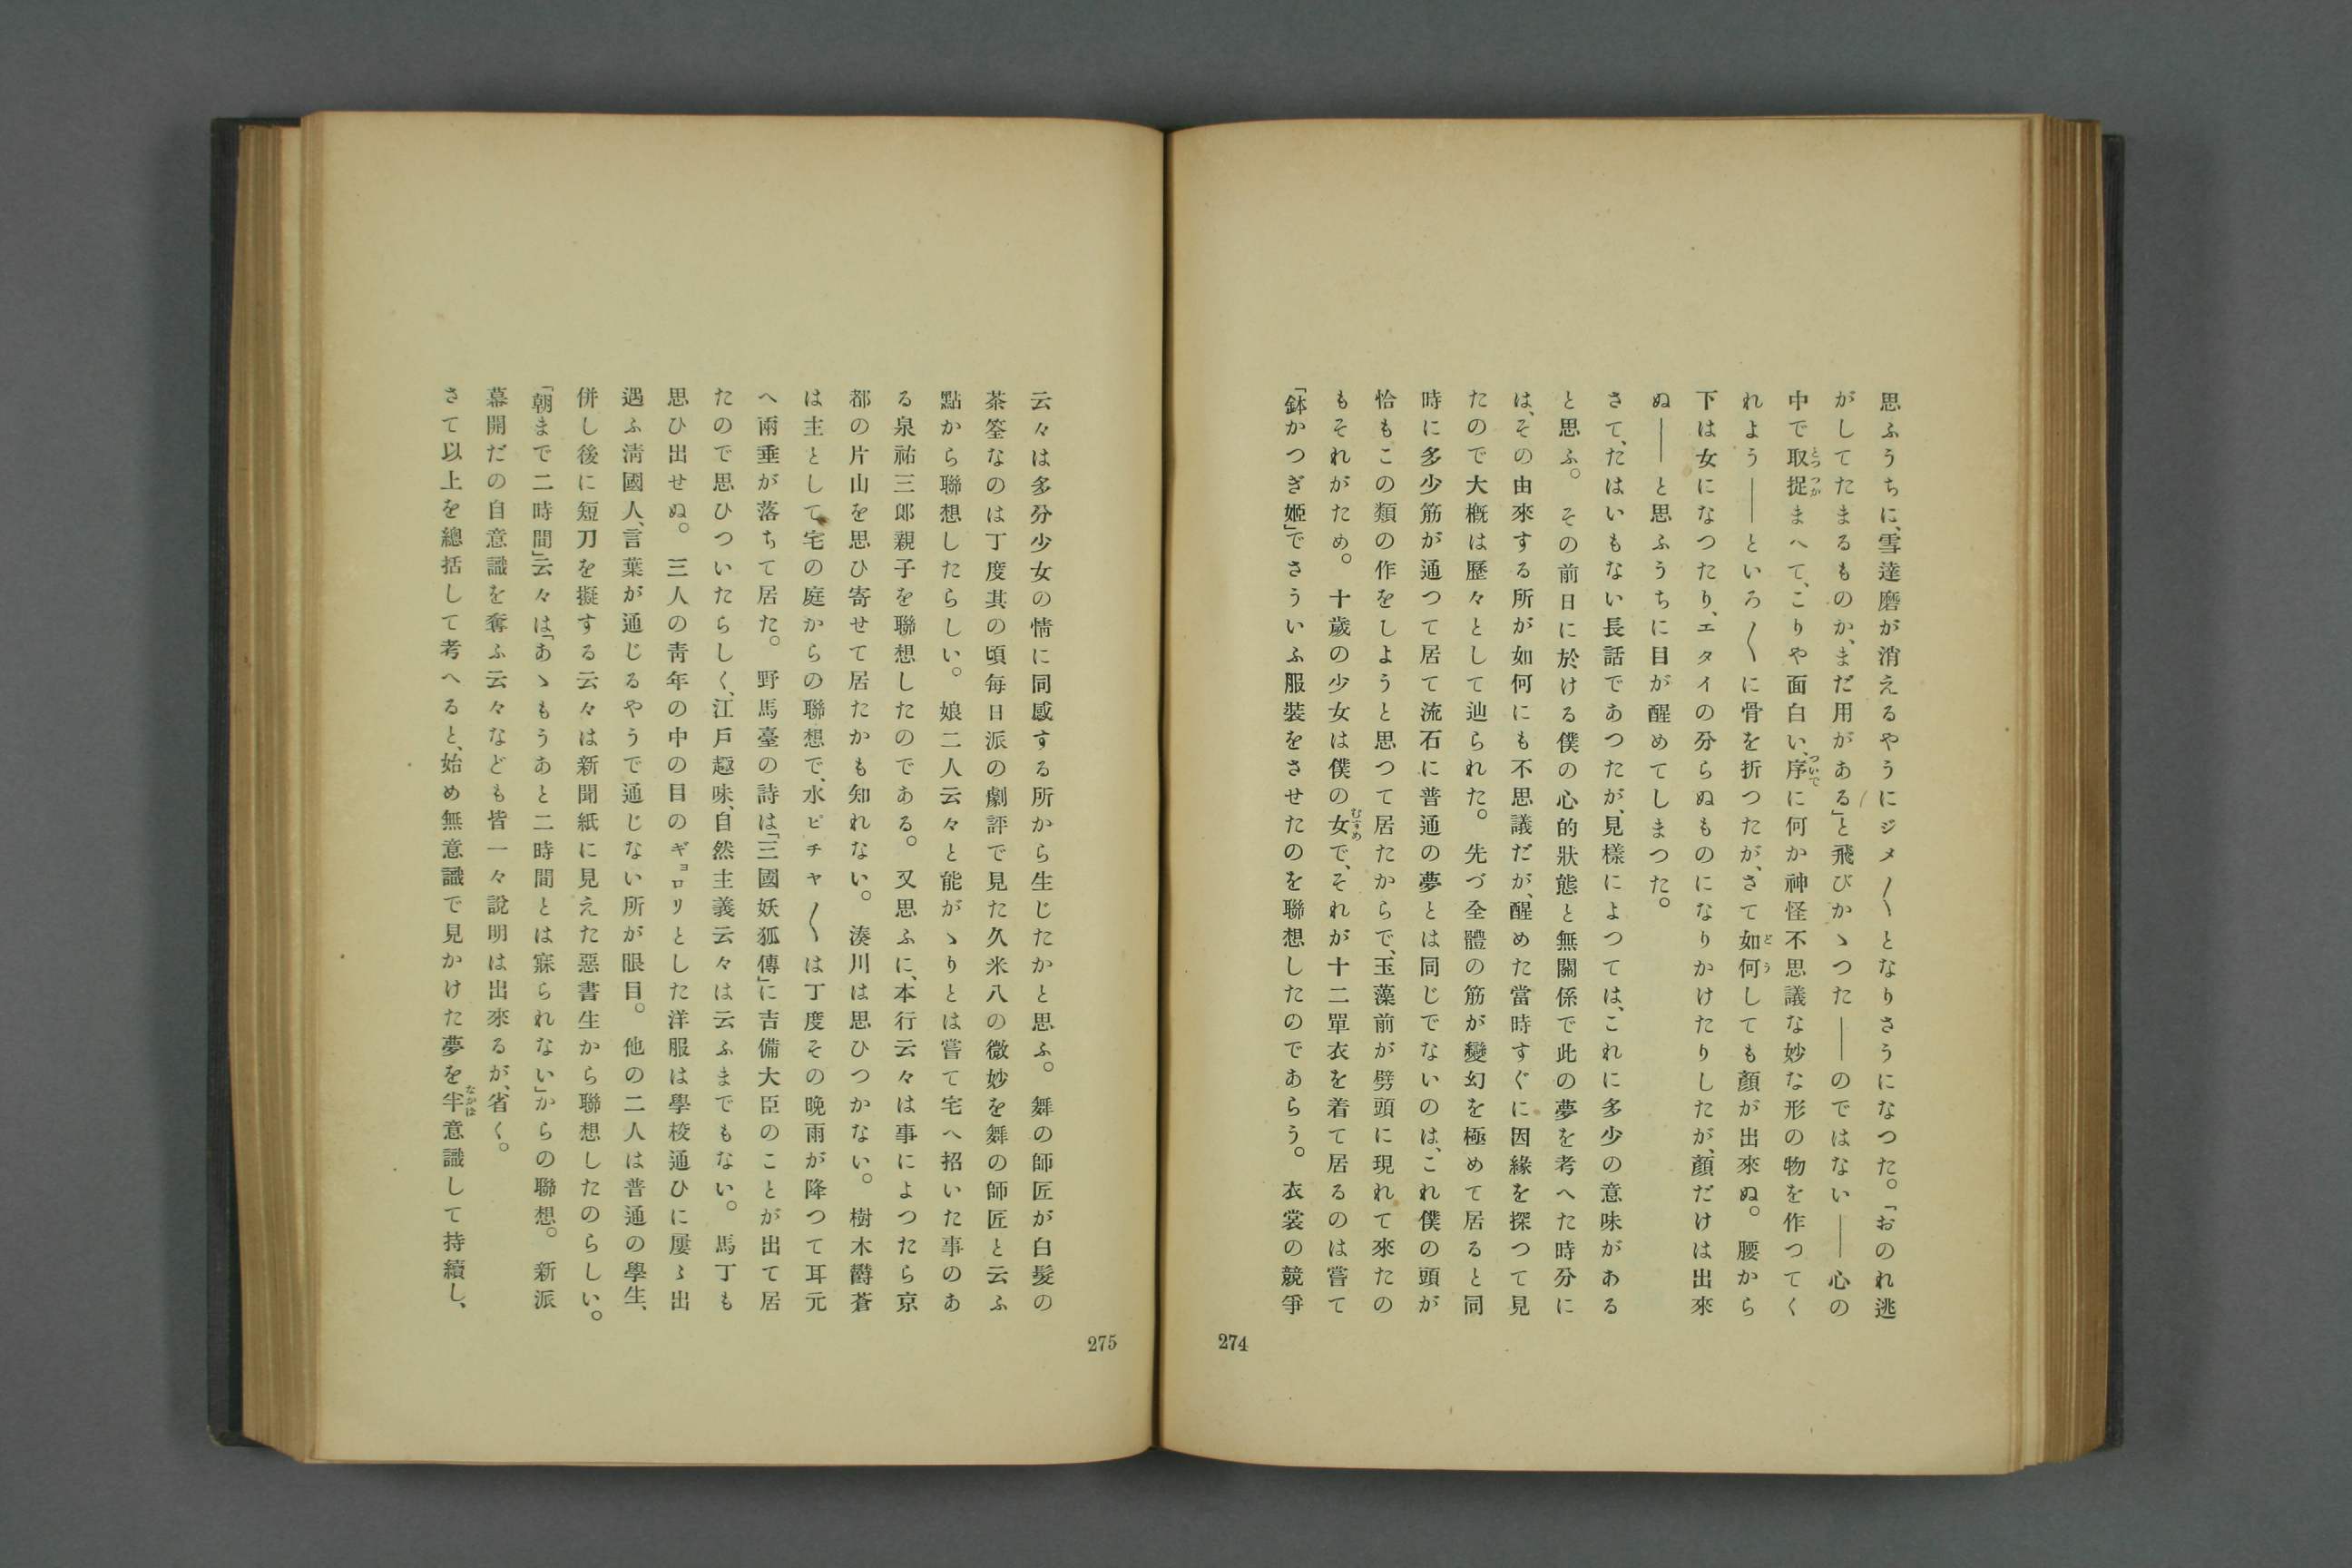 思ふうちに、雪達磨が消えるやうにジメ〳〵となりさうになつた。「おのれ逃
がしてたまるものか、まだ用がある」と飛びかゝつた――のではない――心の
中で取捉まへて、こりや面白い、序に何か神怪不思議な妙な形の物を作つてく
れよう――といろ〳〵に骨を折つたが、さて如何しても顏が出來ぬ。腰から
下は女になつたり、エタイの分らぬものになりかけたりしたが、顏だけは出來
ぬ――と思ふうちに目が醒めてしまつた。
さて、たはいもない長話であつたが、見樣によつては、これに多少の意味がある
と思ふ。その前日に於ける僕の心的狀態と無關係で此の夢を考へた時分に
は、その由來する所が如何にも不思議だが、醒めた當時すぐに因緣を探つて見
たので大槪は歷々として辿られた。先づ全體の筋が變幻を極めて居ると同
時に多少筋が通つて居て流石に普通の夢とは同じでないのは、これ僕の頭が
恰もこの類の作をしようと思つて居たからで、玉藻前が劈頭に現れて來たの
もそれがため。十歲の少女は僕の女で、それが十二單衣を着て居るのは嘗て
「鉢かつぎ姬」でさういふ服裝をさせたのを聯想したのであらう。衣裳の競爭
274
云々は多分少女の情に同感する所から生じたかと思ふ。舞の師匠が白髮の
茶筌なのは丁度其の頃每日派の劇評で見た久米八の微妙を舞の師匠と云ふ
點から聯想したらしい。娘二人云々と能がゝりとは嘗て宅へ招いた事のあ
る泉祐三郞親子を聯想したのである。又思ふに、本行云々は事によつたら京
都の片山を思ひ寄せて居たかも知れない。湊川は思ひつかない。樹木欝蒼
は主として宅の庭からの聯想で、水ピチヤ〳〵は丁度その晩雨が降つて耳元
へ雨垂が落ちて居た。野馬臺の詩は「三國妖狐傳」に吉備大臣のことが出て居
たので思ひついたらしく、江戶趣味、自然主義云々は云ふまでもない。馬丁も
思ひ出せぬ。三人の靑年の中の目のギョロリとした洋服は學校通ひに屢〻出
遇ふ淸國人、言葉が通じるやうで通じない所が眼目。他の二人は普通の學生、
併し後に短刀を擬する云々は新聞紙に見えた惡書生から聯想したのらしい。
「朝まで二時間」云々は「あゝもうあと二時間とは寐られない」からの聯想。新派
幕開だの自意識を奪ふ云々なども皆一々說明は出來るが、省く。
さて以上を總括して考へると、始め無意識で見かけた夢を半意識して持續し、
275